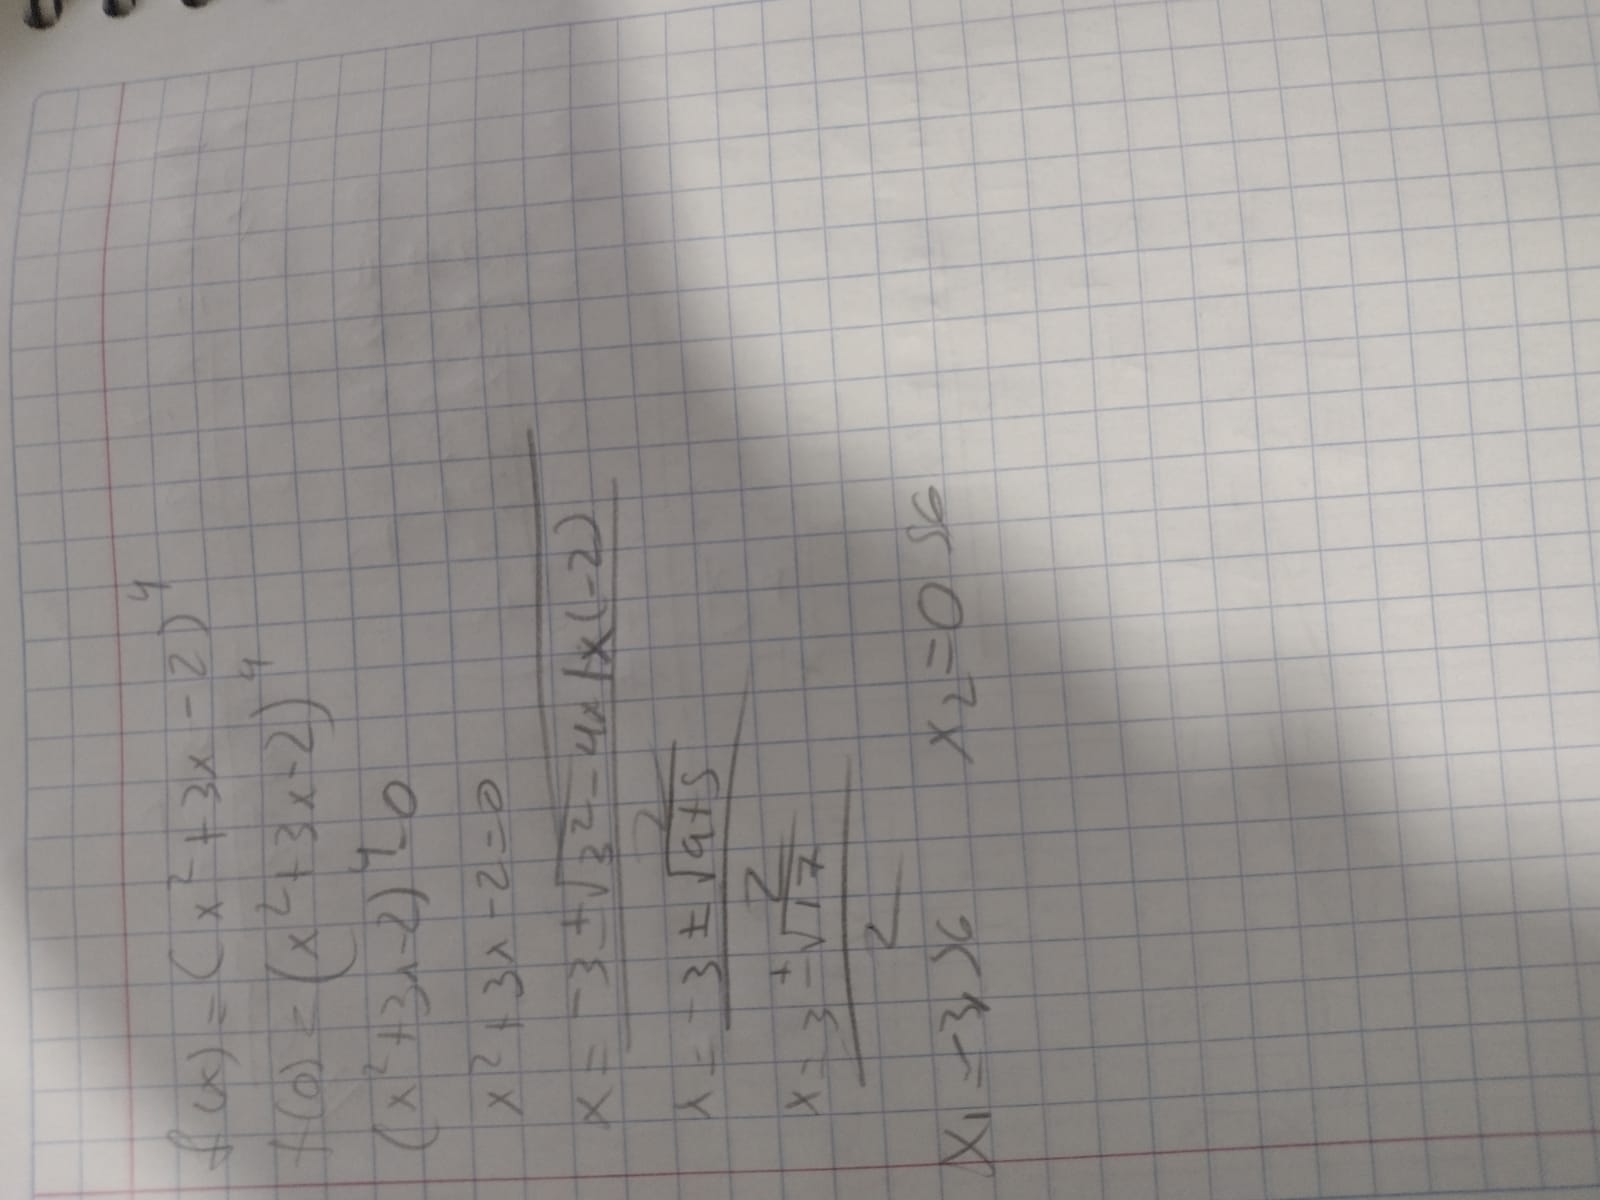 f(x) = (x² + 3x - 2)⁴
f(0) = (x² + 3x - 2)⁴
(x² + 3x - 2)⁴ = 0
x² + 3x - 2 = 0
x = -3 ± √3² - 4x1x(-2)
2
x = -3 ± √9+8
2
x = 3 ± √17
2
x₁ = -3,56 x₂ = 0 56